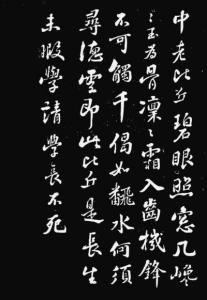 中老比丘碧眼照窓几巉
々玉為骨凜々霜入齒機鋒
不可觸千偈如飜水何須
尋德雲即此比丘是長生
未暇學請學長不死